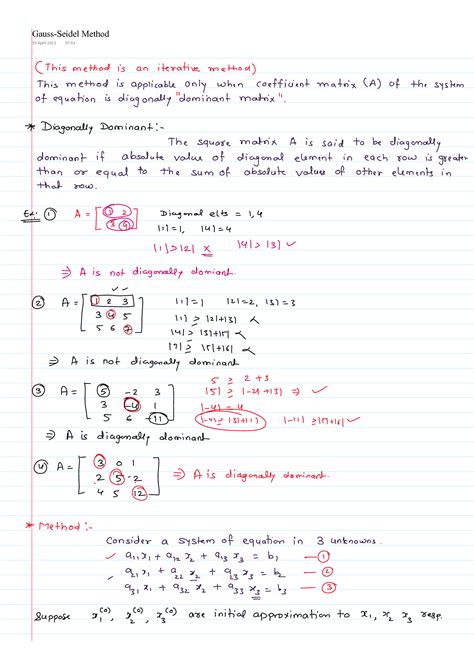 Gauss-Seidel Method
(This method is an iterative method)
This method is applicable only when coefficient matrix (A) of the system
of equation is diagonally "dominant matrix".
* Diagonally Dominant:-
The square matrix A is said to be diagonally
dominant if absolute value of diagonal element in each row is greater
than or equal to the sum of absolute value of other elements in
that row.
Ex: ① A = [1 2 Diagonal elts = 1, 4
3 4] |1| = 1, |4| = 4
|1| > |2| x |4| > |3| ✓
⇒ A is not diagonally domiant.
✓ ✓
② A = [1 2 3 |1| = 1 |2| = 2, |3| = 3
3 4 5 |1| ≥ |2|+|3|
5 6 7] |4| ≥ |3|+|5|
|7| ≥ |5|+|6|
⇒ A is not diagonally dominant
5 ≥ 2 + 3
③ A = [5 -2 3 |5| ≥ |-2|+|3| ⇒ ✓
3 -4 1 |-4| - 4
5 6 -11] |-4| ≥ |3|+|1| |-11| ≥ |5|+|6| ✓
⇒ A is diagonally dominant
④ A = [3 0 1
2 5 -2 ⇒ A is diagonally dominant.
4 5 12]
* Method :-
Consider a system of equation in 3 unknowns.
✓ a₁₁x₁ + a₁₂x₂ + a₁₃x₃ = b₁ — ①
✓ a₂₁x₁ + a₂₂x₂ + a₂₃x₃ = b₂ — ②
a₃₁x₁ + a₃₂x₂ + a₃₃x₃ = b₃ — ③
Suppose x₁⁽⁰⁾, x₂⁽⁰⁾, x₃⁽⁰⁾ are initial approximation to x₁, x₂ x₃ resp.